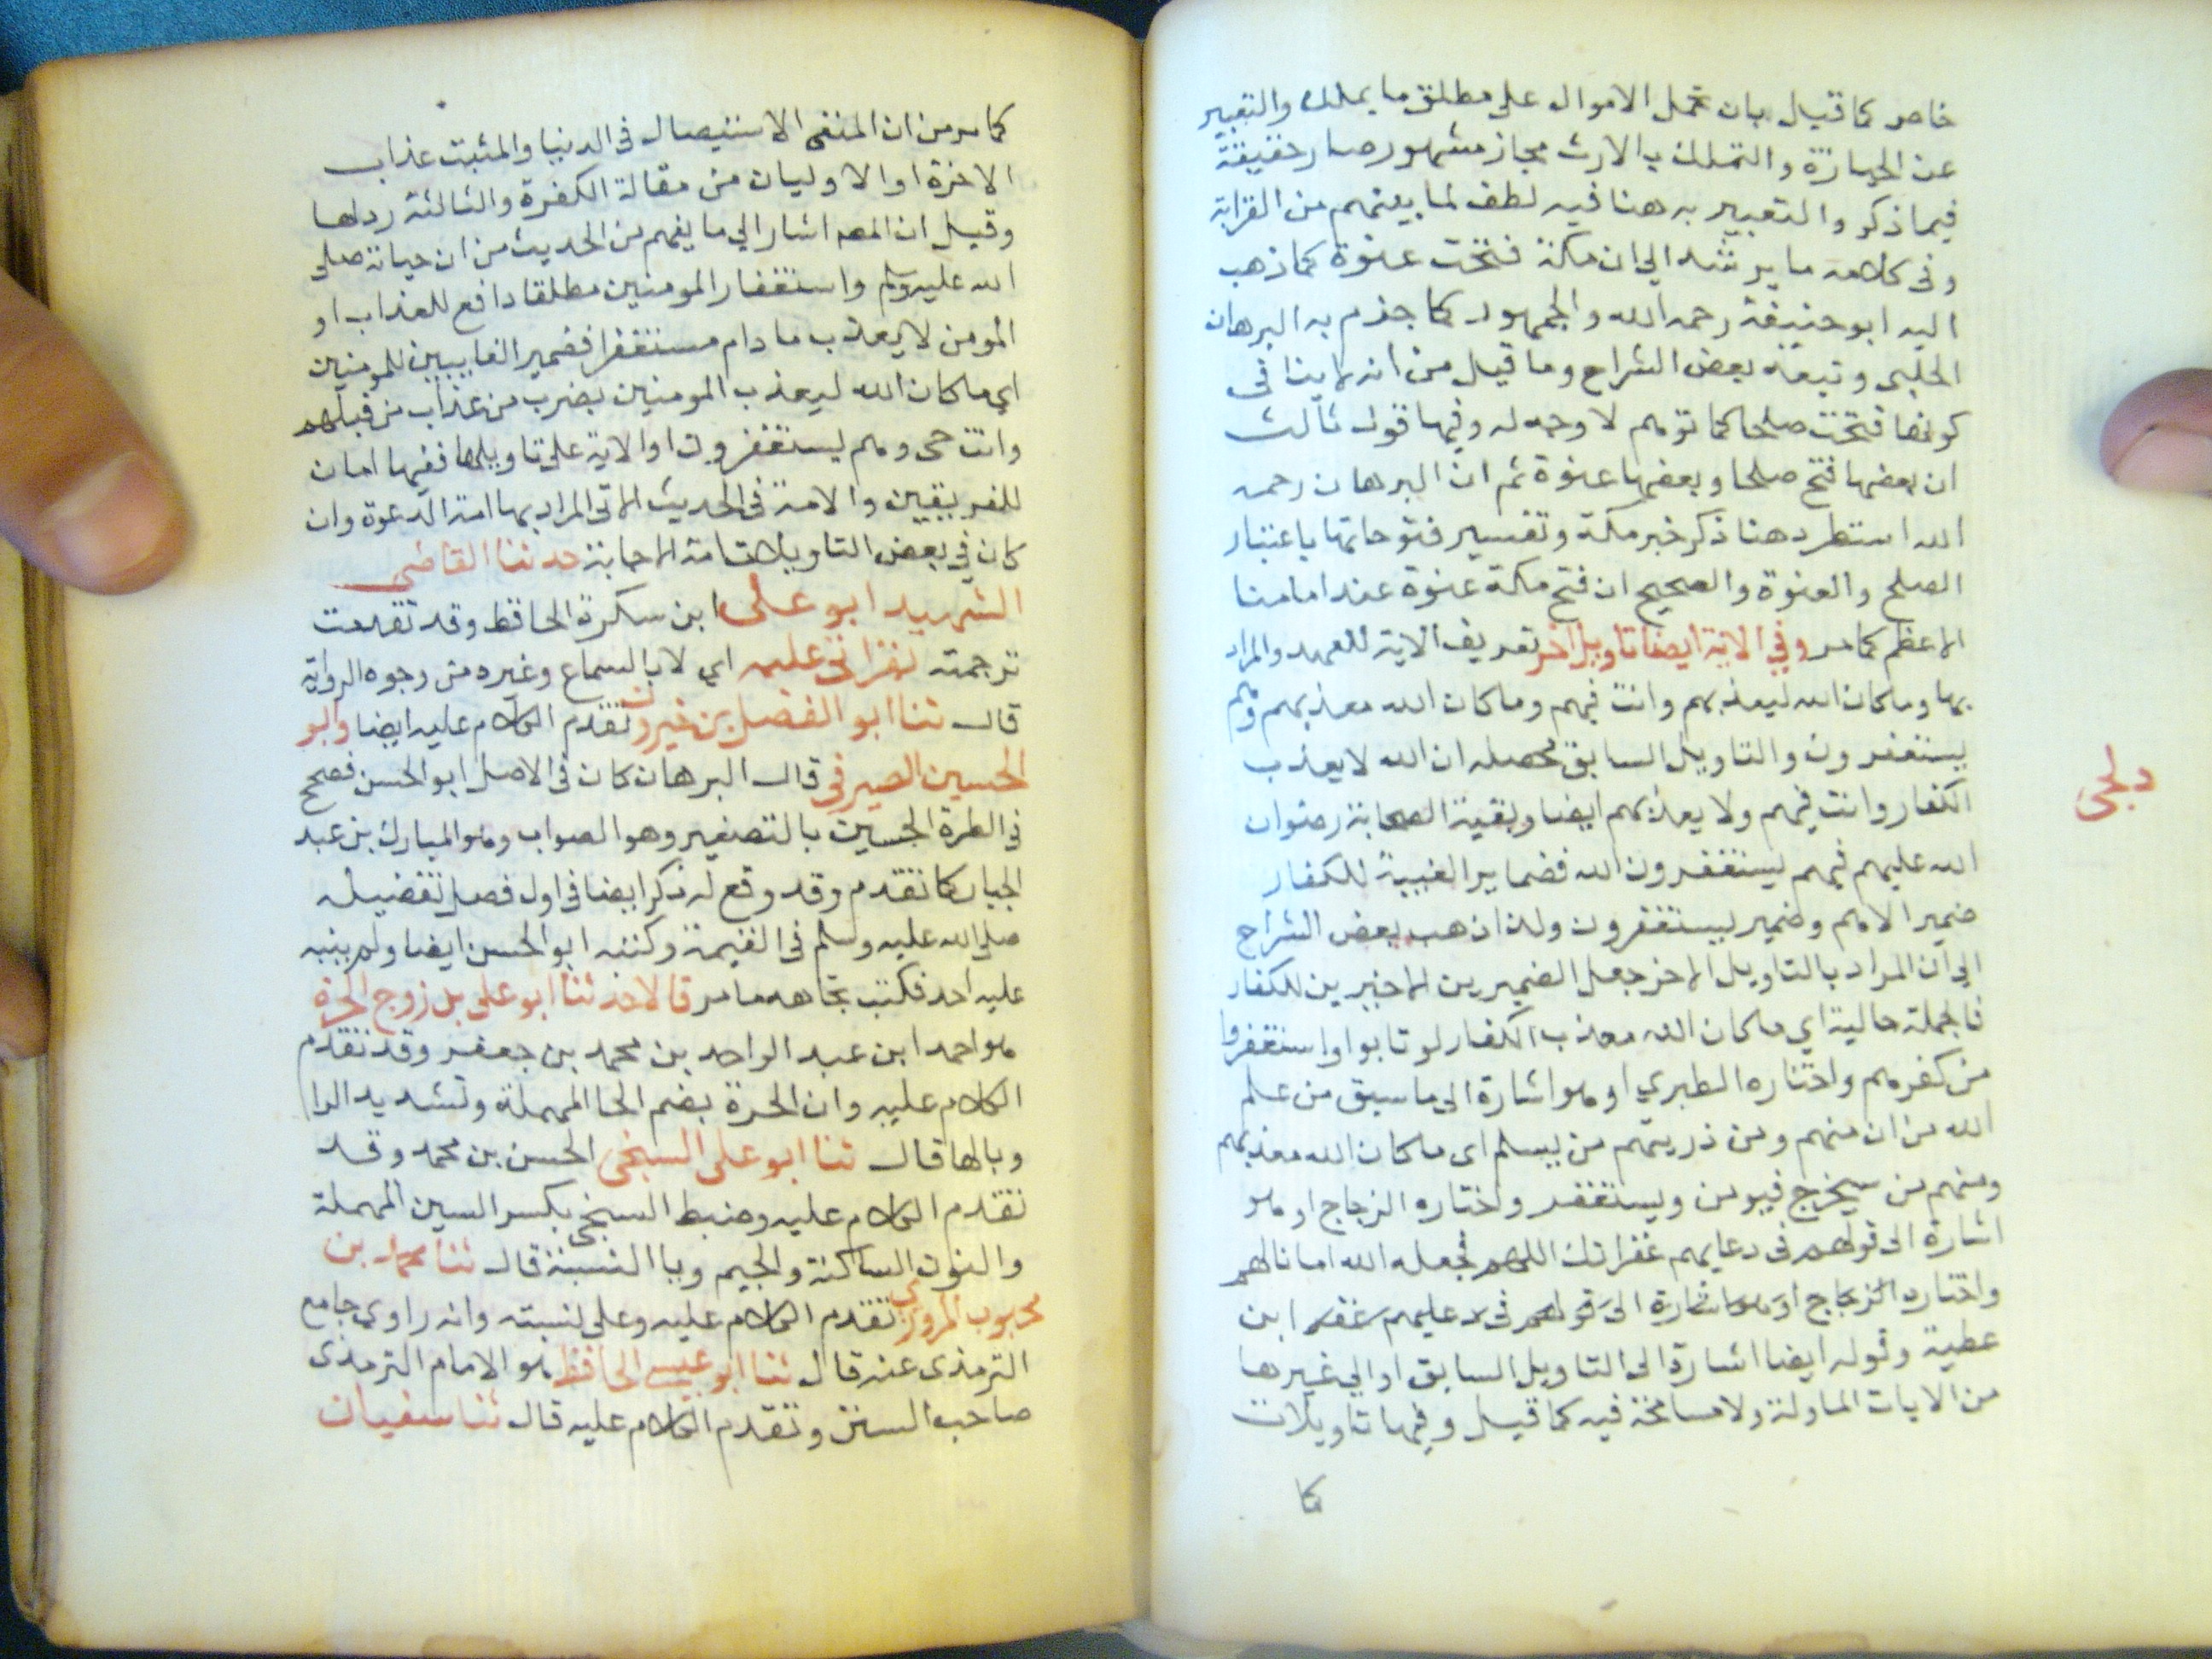 خاص كما قيل بان تحمل الاموال على مطلق ما يملك والتعبير
عن الحيازة والتملك بالارث مجاز مشهور صار حقيقة
فيما ذكر والتعبير به هنا فيه لطف لما بينهم من القرابة
وفي كلامه ما يرشد الي ان مكة فتحت عنوة كما ذهب
اليه ابو حنيفة رحمه الله والجمهور كما جزم به البرهان
الحلبي وتبعه بعض الشراح وما قيل من انه لا ينافى
كونها فتحت صلحا كما توهم لا وجه له وفيها قول ثالث
ان بعضها فتح صلحا وبعضها عنوة ثم ان البرهان رحمه
الله استطرد هنا ذكر خبر مكة وتفسير فتوحاتها باعتبار
الصلح والعنوة والصحيح ان فتح مكة عنوة عند امامنا
الاعظم كما مر وفي الاية ايضا تاويل اخر تعريف الاية للعهد والمراد
بها وما كان الله ليعذبهم وانت فيهم وما كان الله معذبهم وهم
يستغفرون والتاويل السابق محصله ان الله لا يعذب
الكفار وانت فيهم ولا يعذبهم ايضا وبقية الصحابة رضوان
الله عليهم فيهم يستغفرون الله فضماير الغيبة للكفار
ضمير الامم وضمير يستغفرون ولذا ذهب بعض الشراح
الي ان المراد بالتاويل الاخر جعل الضميرين الاخيرين للكفار
فالجملة حالية اي ما كان الله معذب الكفار لو تابوا واستغفروا
من كفرهم واختاره الطبري او هو اشارة الى ما سبق من علم
الله من ان منهم ومن ذريتهم من يسلم اى ما كان الله معذبهم
ومنهم من سيخرج فيومن ويستغفر واختاره الزجاج او هو
اشارة الى قولهم فى دعايهم غفرانك اللهم فجعله الله امانا لهم
واختاره الزجاج او هو اشارة الى قولهم فى دعايهم غفر ابن
عطية وقوله ايضا اشارة الى التاويل السابق او الي غيرها
من الايات الماولة ولا مسامحة فيه كما قيل وفيها تاويلات
كا
دلجى
كما مر من ان المنفى الاستيصال فى الدنيا والمثبت عذاب
الاخرة او الاوليان من مقالة الكفرة والثالثة رد لها
وقيل ان المصه اشار الي ما يفهم من الحديث من ان حياته صلى
الله عليه وسلم واستغفار المومنين مطلقا دافع للعذاب او
المومن لا يعذب ما دام مستغفرا فضمير الغايبين للمومنين
اي ما كان الله ليعذب المومنين بضرب من عذاب من قبلهم
وانت حى وهم يستغفرون او الاية على تاويلها ففيها امان
للفريقين والامة فى الحديث الاتى المراد بها امة الدعوة وان
كان في بعض التاويلات امة الاجابة حدثنا القاضى
الشهيد ابو على ابن سكرة الحافظ وقد تقدمت
ترجمته بقراتى عليه اي لا بالسماع وغيره من وجوه الرواية
قال ثنا ابو الفضل بن خيرون تقدم الكلام عليه ايضا وابو
الحسين الصيرفى قال البرهان كان فى الاصل ابو الحسن فصحح
في الطرة الحسين بالتصغير وهو الصواب وهو المبارك بن عبد
الجبار كما تقدم وقد وقع له ذكر ايضا فى اول فصل تفضيله
صلى الله عليه وسلم فى القيمة وكنته ابو الحسن ايضا ولم ينبه
عليه احد فكتب تجاهه ما مر قالا حدثنا ابو على بن زوج الحرة
هو احمد ابن عبد الواحد بن محمد بن جعفر وقد تقدم
الكلام عليه وان الحرة بضم الحا المهملة وتشديد الرا
وبالها قال ثنا ابو على السنجى الحسن بن محمد وقد
تقدم الكلام عليه وضبط السنجى بكسر السين المهملة
والنون الساكنة والجيم ويا النسبة قال ثنا محمد بن
محبوب المروزي تقدم الكلام عليه وعلى نسبته وانه راوي جامع
الترمذى عنه قال ثنا ابو عيسى الحافظ هو الامام الترمذى
صاحب السنن وتقدم الكلام عليه قال ثنا سفيان